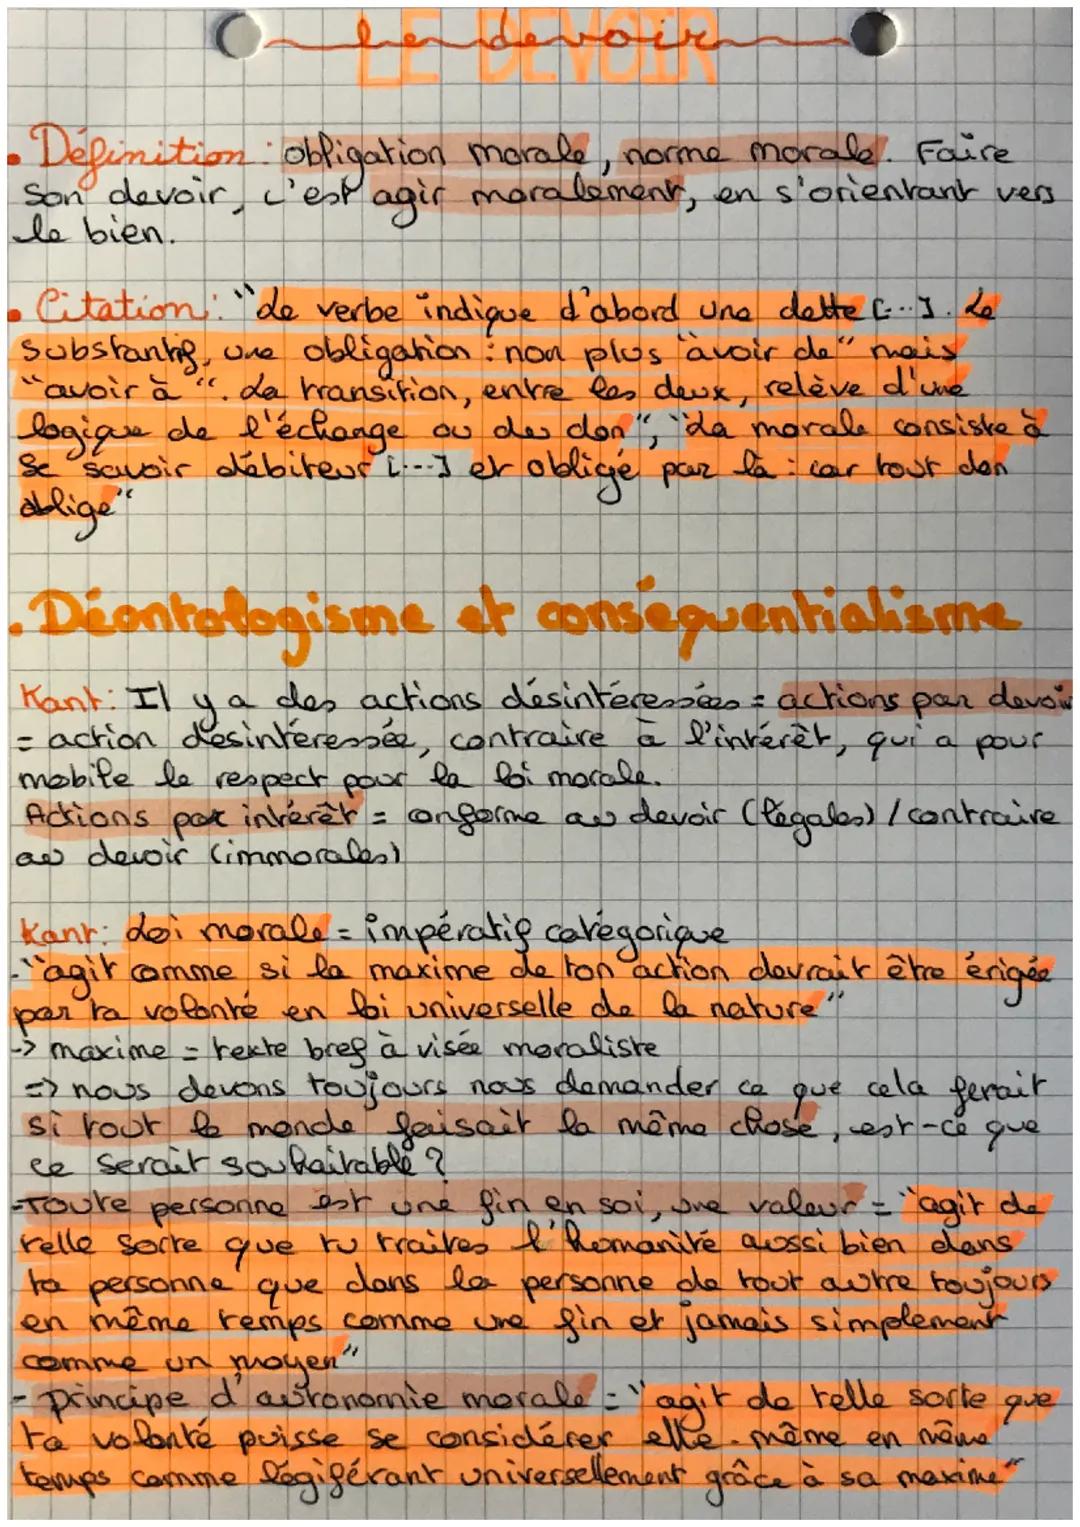 Le devoir
LE DEVOIR
• Définition : obligation morale, norme morale. Faire
son devoir, c'est agir moralement, en s'orientant vers
le bien.
• Citation : "Le verbe indique d'abord une dette [...]. Le
substantif, une obligation : non plus "avoir de" mais
"avoir à". La transition, entre les deux, relève d'une
logique de l'échange ou du don", "La morale consiste à
se savoir débiteur [...] et obligé par là : car tout don
oblige"
• Déontologisme et conséquentialisme
Kant : Il y a des actions désintéressées = actions par devoir
= action désintéressée, contraire à l'intérêt, qui a pour
mobile le respect pour la loi morale.
Actions par intérêt = conforme au devoir (légales) / contraire
au devoir (immorales)
Kant : Loi morale = impératif catégorique
- "agit comme si la maxime de ton action devrait être érigée
par ta volonté en loi universelle de la nature"
-> maxime = texte bref à visée moraliste
=> nous devons toujours nous demander ce que cela ferait
si tout le monde faisait la même chose, est-ce que
ce serait souhaitable ?
- Toute personne est une fin en soi, une valeur = "agit de
telle sorte que tu traites l'humanité aussi bien dans
ta personne que dans la personne de tout autre toujours
en même temps comme une fin et jamais simplement
comme un moyen"
- principe d'autonomie morale = "agit de telle sorte que
ta volonté puisse se considérer elle-même en même
temps comme légiférant universellement grâce à sa maxime"